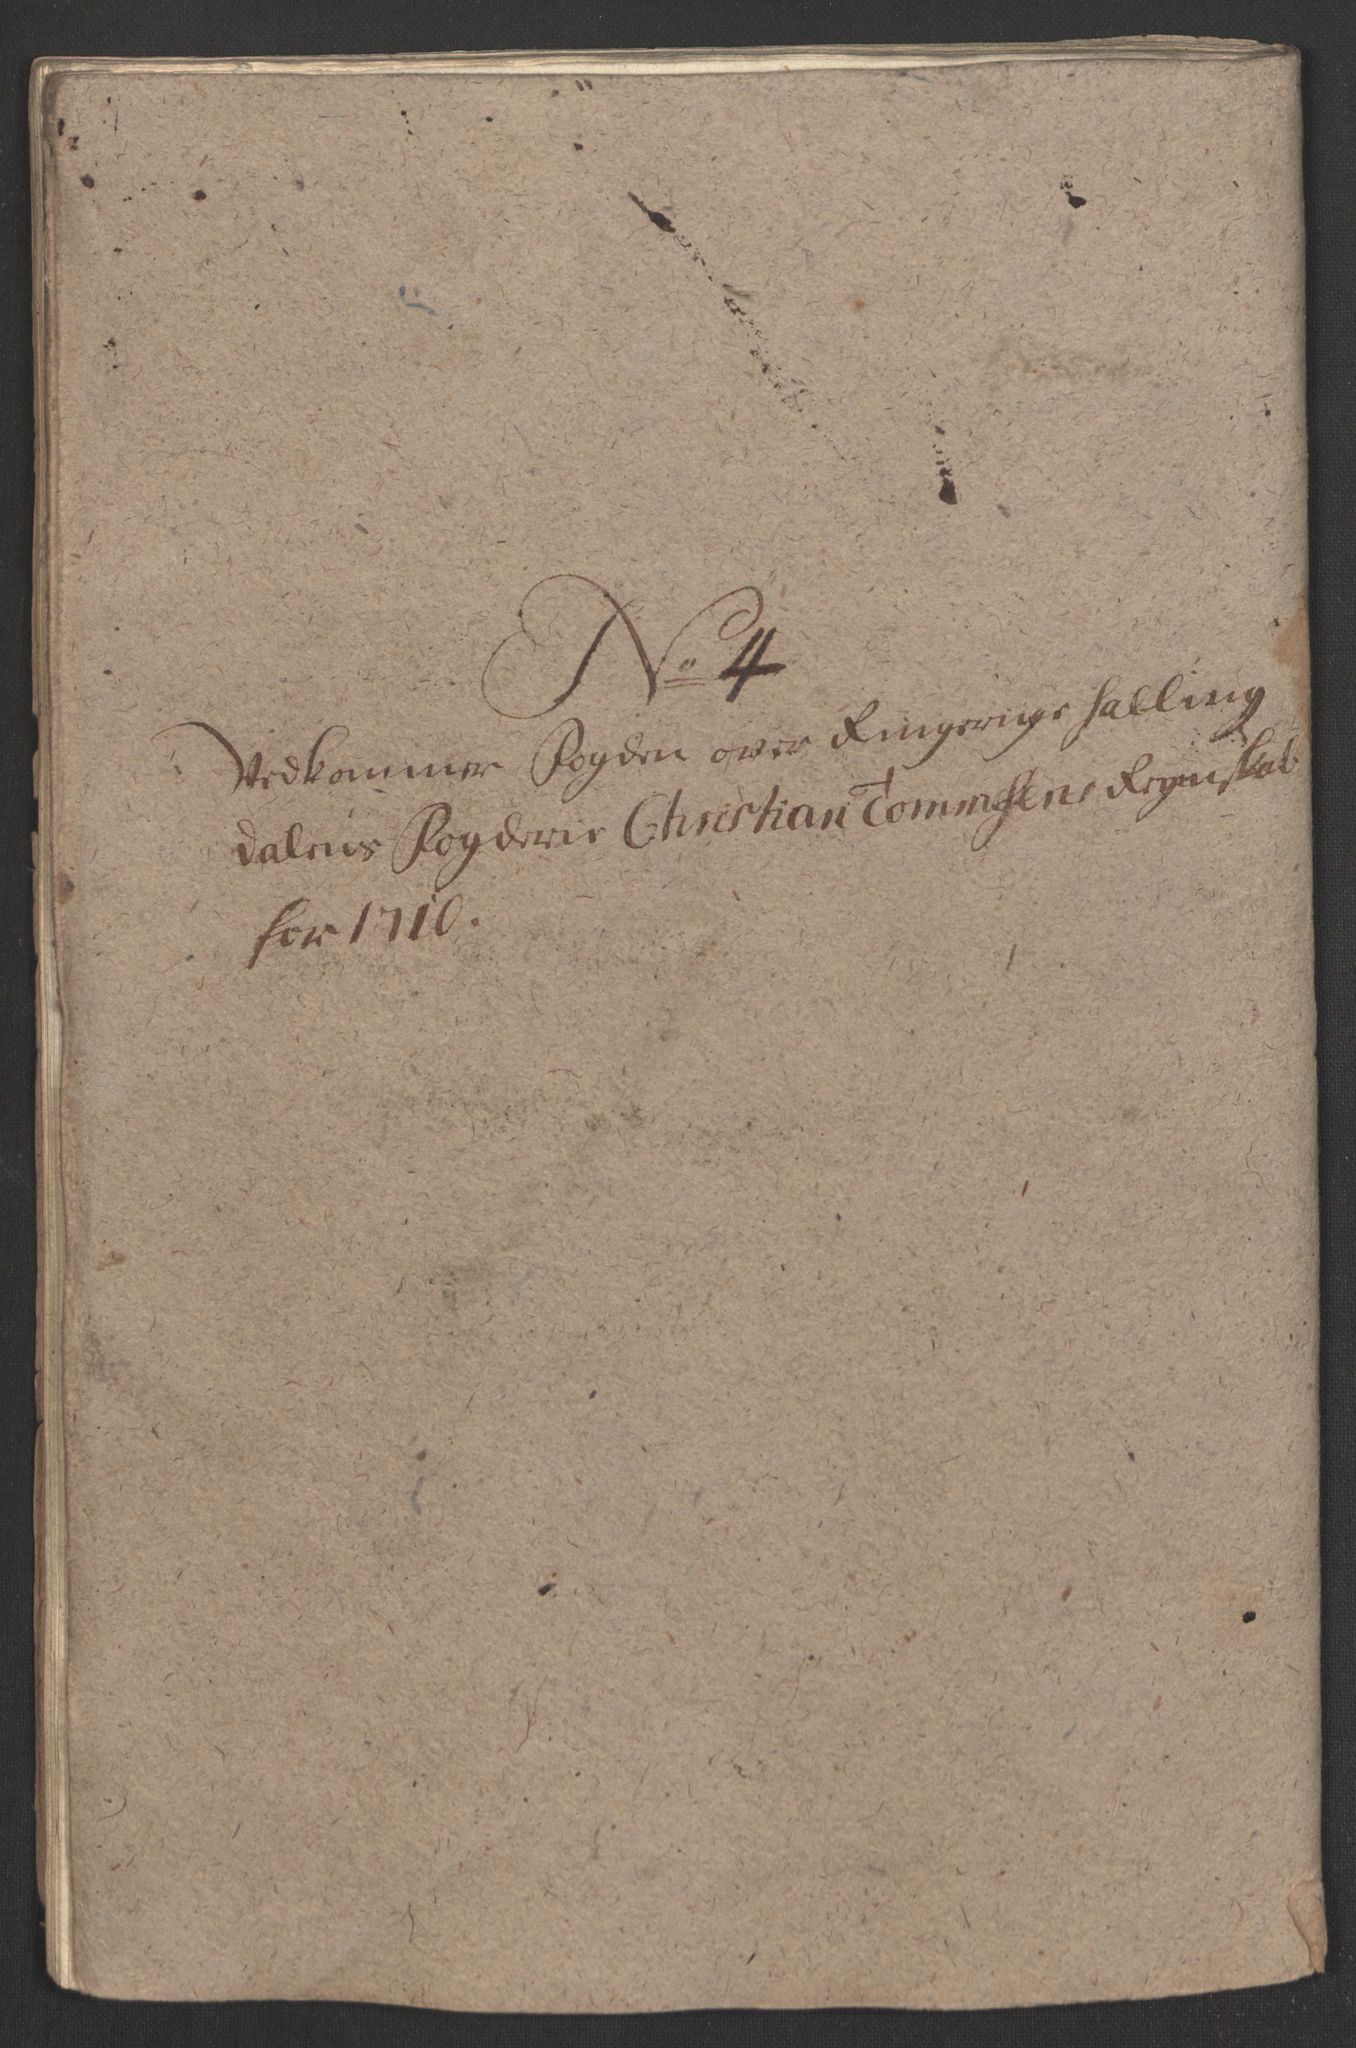 No 4
Vedkommer Fogden over Ringerige Halling
dalens Fogderie Christian Tommesens Regnskab
for 1710.